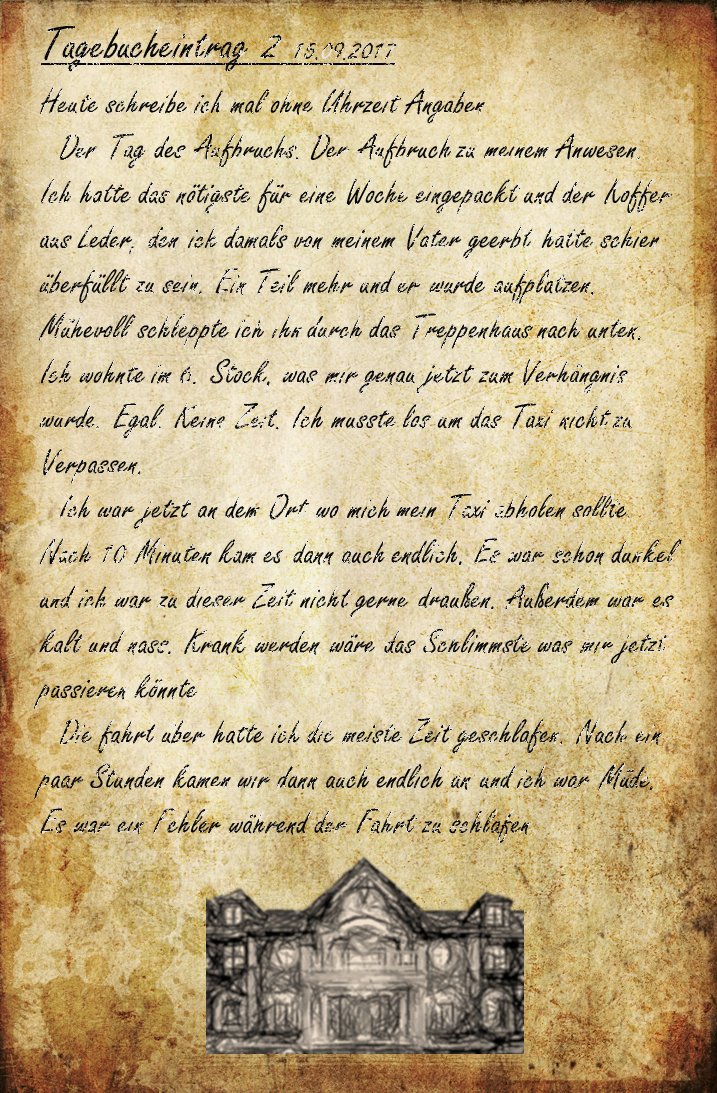 Tagebucheintrag 2 15.09.2017
Heute schreibe ich mal ohne Uhrzeit Angaben
Der Tag des Aufbruchs. Der Aufbruch zu meinem Anwesen.
Ich hatte das nötigste für eine Woche eingepackt und der Koffer
aus Leder, den ich damals von meinem Vater geerbt hatte schier
überfüllt zu sein. Ein Teil mehr und er wurde aufplatzen.
Mühevoll schleppte ich ihn durch das Treppenhaus nach unten.
Ich wohnte im 6. Stock, was mir genau jetzt zum Verhängnis
wurde. Egal. Keine Zeit. Ich musste los um das Taxi nicht zu
Verpassen.
Ich war jetzt an dem Ort wo mich mein Taxi abholen sollte
Nach 10 Minuten kam es dann auch endlich. Es war schon dunkel
und ich war zu dieser Zeit nicht gerne draußen. Außerdem war es
kalt und nass. Krank werden wäre das Schlimmste was mir jetzt
passieren könnte
Die fahrt über hatte ich die meiste Zeit geschlafen. Nach ein
paar Stunden kamen wir dann auch endlich an und ich war Müde.
Es war ein Fehler während der Fahrt zu schlafen